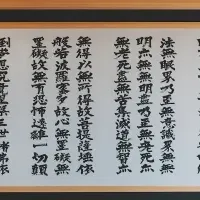 法無眼界乃至無意識界無無
明亦無無明盡乃至無老死亦
無老死盡無苦集滅道無智亦
無得以無所得故菩提薩埵依
般若波羅蜜多故心無罣礙無
罣礙故無有恐怖遠離一切顛
倒夢想究竟涅槃三世諸佛依